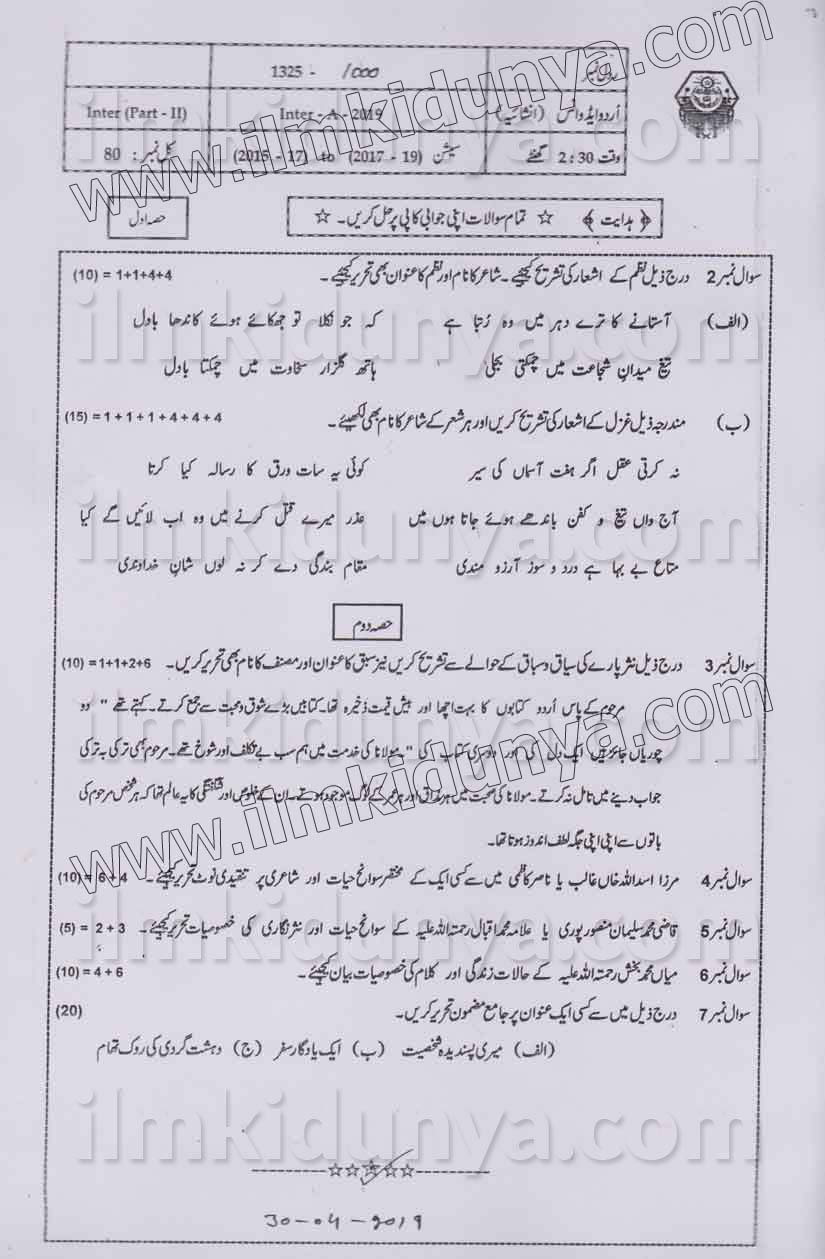 رول نمبر
1325 - 1000
اُردو ایڈوانس (انشائیہ)
Inter - A - 2019
Inter (Part - II)
وقت 2 : 30 گھنٹے
سیشن (19 - 2017) to (17 - 2015)
کل نمبر : 80
﴿ ہدایت ﴾ ☆ تمام سوالات اپنی جوابی کاپی پر حل کریں۔ ☆
حصہ اول
سوال نمبر 2 درج ذیل نظم کے اشعار کی تشریح کیجیے۔ شاعر کا نام اور نظم کا عنوان بھی تحریر کیجیئے۔ (10) = 1+1+4+4
(الف) آستانے کا ترے دہر میں وہ رُتبا ہے کہ جو نکلا تو جھکائے ہوئے کاندھا بادل
تیغ میدانِ شجاعت میں چمکتی بجلی ہاتھ گلزار سخاوت میں چمکتا بادل
(ب) مندرجہ ذیل غزل کے اشعار کی تشریح کریں اور ہر شعر کے شاعر کا نام بھی لکھیئے۔ (15) = 1 + 1 + 1 + 4 + 4 + 4
نہ کرتی عقل اگر ہفت آسماں کی سیر کوئی یہ سات ورق کا رسالہ کیا کرتا
آج واں تیغ و کفن باندھے ہوئے جاتا ہوں میں عذر میرے قتل کرنے میں وہ اب لائیں گے کیا
متاع بے بہا ہے درد و سوز آرزو مندی مقام بندگی دے کر نہ لوں شانِ خداوندی
حصہ دوم
سوال نمبر 3 درج ذیل نثر پارے کی سیاق و سباق کے حوالے سے تشریح کریں نیز سبق کا عنوان اور مصنف کا نام بھی تحریر کریں۔ (10) = 1+1+2+6
مرحوم کے پاس اُردو کتابوں کا بہت اچھا اور بیش قیمت ذخیرہ تھا۔ کتابیں بڑے شوق و محبت سے جمع کرتے۔ کہتے تھے " دو
چوریاں جائز ہیں ایک دل کی اور دوسری کتاب کی "۔ مولانا کی خدمت میں ہم سب بے تکلف اور شوخ تھے۔ مرحوم بھی ترکی بہ ترکی
جواب دینے میں تامل نہ کرتے۔ مولانا کی صحبت میں ہر مذاق اور ہر عمر کے لوگ موجود ہوتے۔ ان کے خلوص اور شگفتگی کا یہ عالم تھا کہ ہر شخص مرحوم کی
باتوں سے اپنی اپنی جگہ لطف اندوز ہوتا تھا۔
سوال نمبر 4 مرزا اسد اللہ خاں غالب یا ناصر کاظمی میں سے کسی ایک کے مختصر سوانح حیات اور شاعری پر تنقیدی نوٹ تحریر کیجیئے۔ (10) = 6 + 4
سوال نمبر 5 قاضی محمد سلیمان منصور پوری یا علامہ محمد اقبال رحمتہ اللہ علیہ کے سوانح حیات اور نثر نگاری کی خصوصیات تحریر کیجیئے۔ (5) = 2 + 3
سوال نمبر 6 میاں محمد بخش رحمتہ اللہ علیہ کے حالات زندگی اور کلام کی خصوصیات بیان کیجیئے۔ (10) = 4 + 6
سوال نمبر 7 درج ذیل میں سے کسی ایک عنوان پر جامع مضمون تحریر کریں۔ (20)
(الف) میری پسندیدہ شخصیت (ب) ایک یادگار سفر (ج) دہشت گردی کی روک تھام
30-04-2019
www.ilmkidunya.com
www.ilmkidunya.com
ilmkidunya.com
ilmkidunya.com
ilmkidunya.com
ilmkidunya.com
ilmkidunya.com